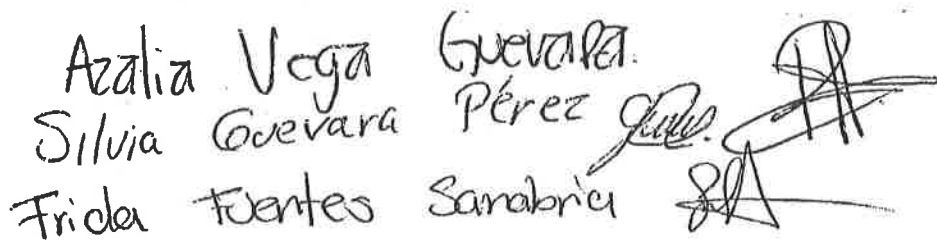 Azalia Vega Guevara.
Silvia Guevara Pérez
Frida Fuentes Sanabria